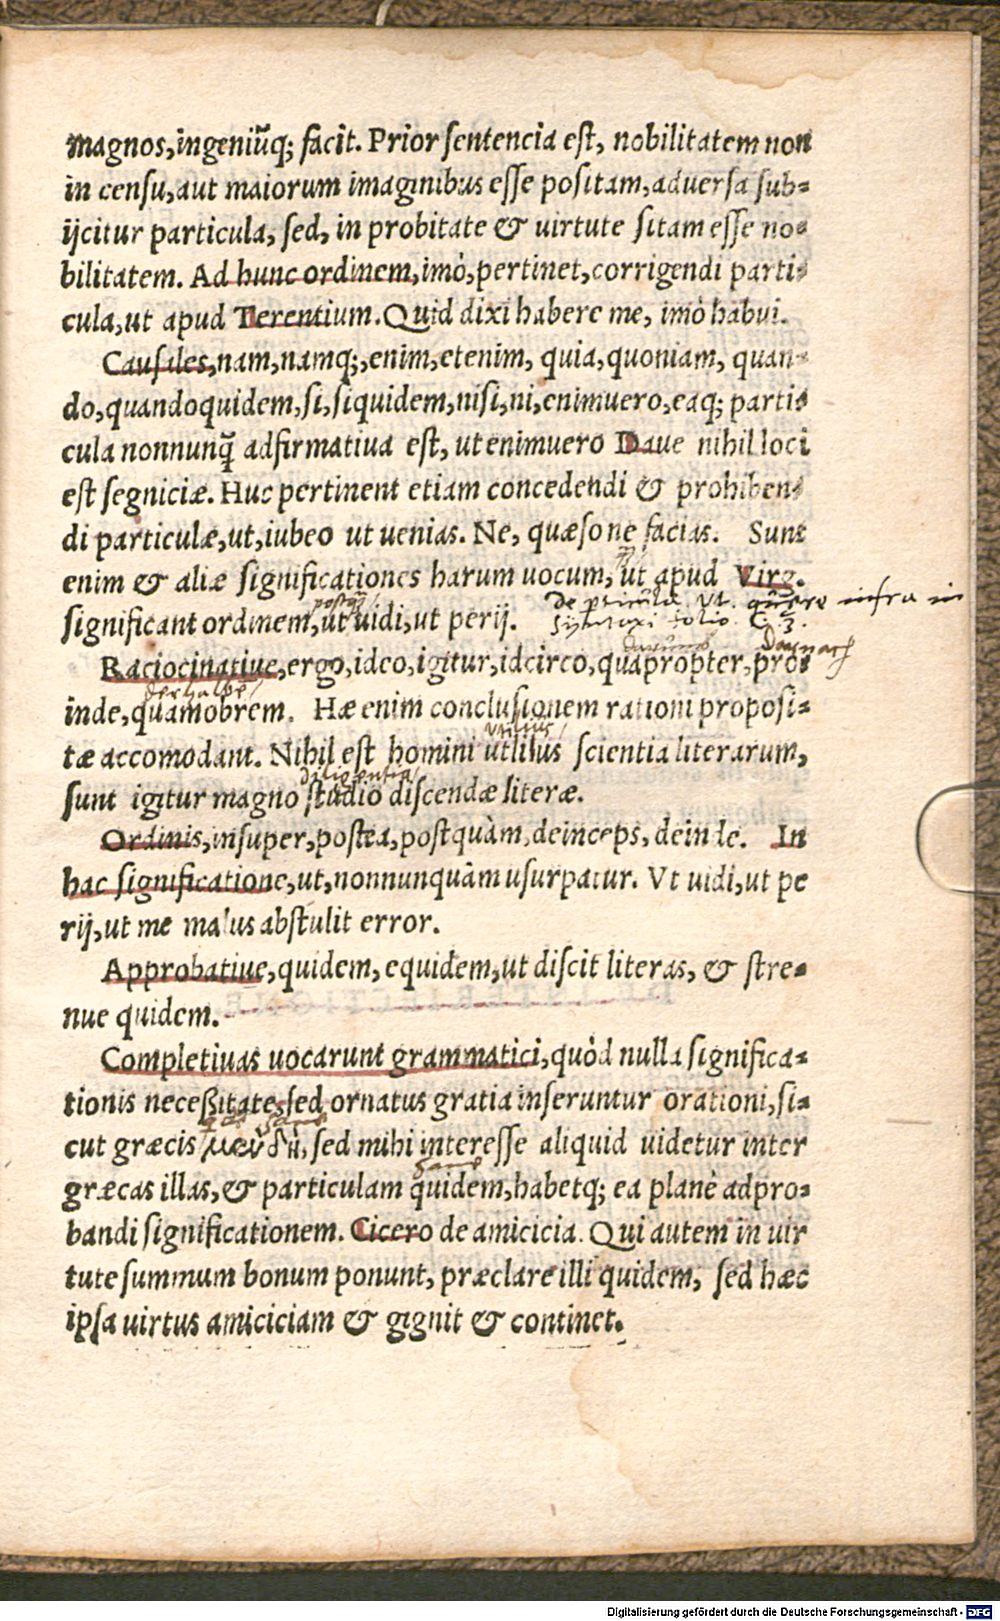 magnos, ingeniũq; facit. Prior sentencia est, nobilitatem non
in censu, aut maiorum imaginibus esse positam, aduersa sub-
ijcitur particula, sed, in probitate & uirtute sitam esse no-
bilitatem. Ad hunc ordinem, imò, pertinet, corrigendi parti-
cula, ut apud Terentium. Quid dixi habere me, imò habui.
Causales, nam, namq;, enim, etenim, quia, quoniam, quan-
do, quandoquidem, si, siquidem, nisi, ni, enimuero, eaq; parti-
cula nonnunq̃ adfirmatiua est, ut enimuero Daue nihil loci
est segniciæ. Huc pertinent etiam concedendi & prohiben-
di particulæ, ut, iubeo ut uenias. Ne, quæso ne facias. Sunt
enim & aliæ significationes harum uocum, ut apud Virg.
postq̃
De pticula Vt. quære infra in
significant ordinem, ut uidi, ut perij.
Syntaxi folio C. 3.
darumb Darnach
Raciocinatiue, ergo, ideo, igitur, idcirco, quapropter, pro-
derhalbe
inde, quamobrem. Hæ enim conclusionem rationi proposi-
utilius
tæ accomodant. Nihil est homini utlilus scientia literarum,
diligentia
sunt igitur magno studio discendæ literæ.
Ordinis, insuper, postea, postquàm, deinceps, deinde. In
hac significatione, ut, nonnunquàm usurpatur. Vt uidi, ut pe
rij, ut me malus abstulit error.
Approbatiue, quidem, equidem, ut discit literas, & stre-
nue quidem.
Completiuas uocarunt grammatici, quòd nulla significa-
tionis neceßitate, sed ornatus gratia inseruntur orationi, si-
cut græcis μεν δή, sed mihi interesse aliquid uidetur inter
græcas illas, & particulam quidem, habetq; ea planè adpro-
bandi significationem. Cicero de amicicia. Qui autem in uir
tute summum bonum ponunt, præclare illi quidem, sed hæc
ipsa uirtus amiciciam & gignit & continet.
Digitalisierung gefördert durch die Deutsche Forschungsgemeinschaft - DFG